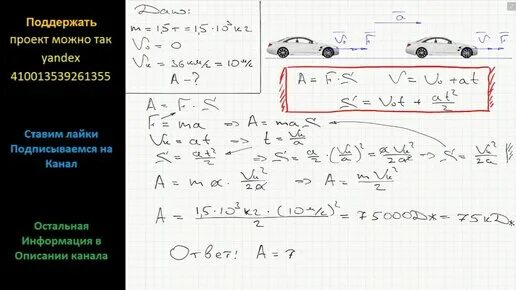 Поддержать
проект можно так
yandex
410013539261355
Ставим лайки
Подписываемся на
Канал
Остальная
Информация в
Описании канала
Дано:
m = 1,5 т = 1,5·10³ кг
V₀ = 0
Vк = 36 км/ч = 10 м/с
A - ?
a
V F V F
A = F·S V = V₀ + at
S = V₀t + at²/2
A = F·S
F = ma ⇒ A = maS
Vк = at ⇒ t = Vк/a
S = at²/2 ⇒ S = a/2·(Vк/a)² = aVк²/2a² ⇒ S = Vк²/2a
A = ma·Vк²/2a ⇒ A = m Vк²/2
A = 1,5·10³кг·(10 м/с)²/2 = 75000Дж = 75кДж
Ответ: A = ?